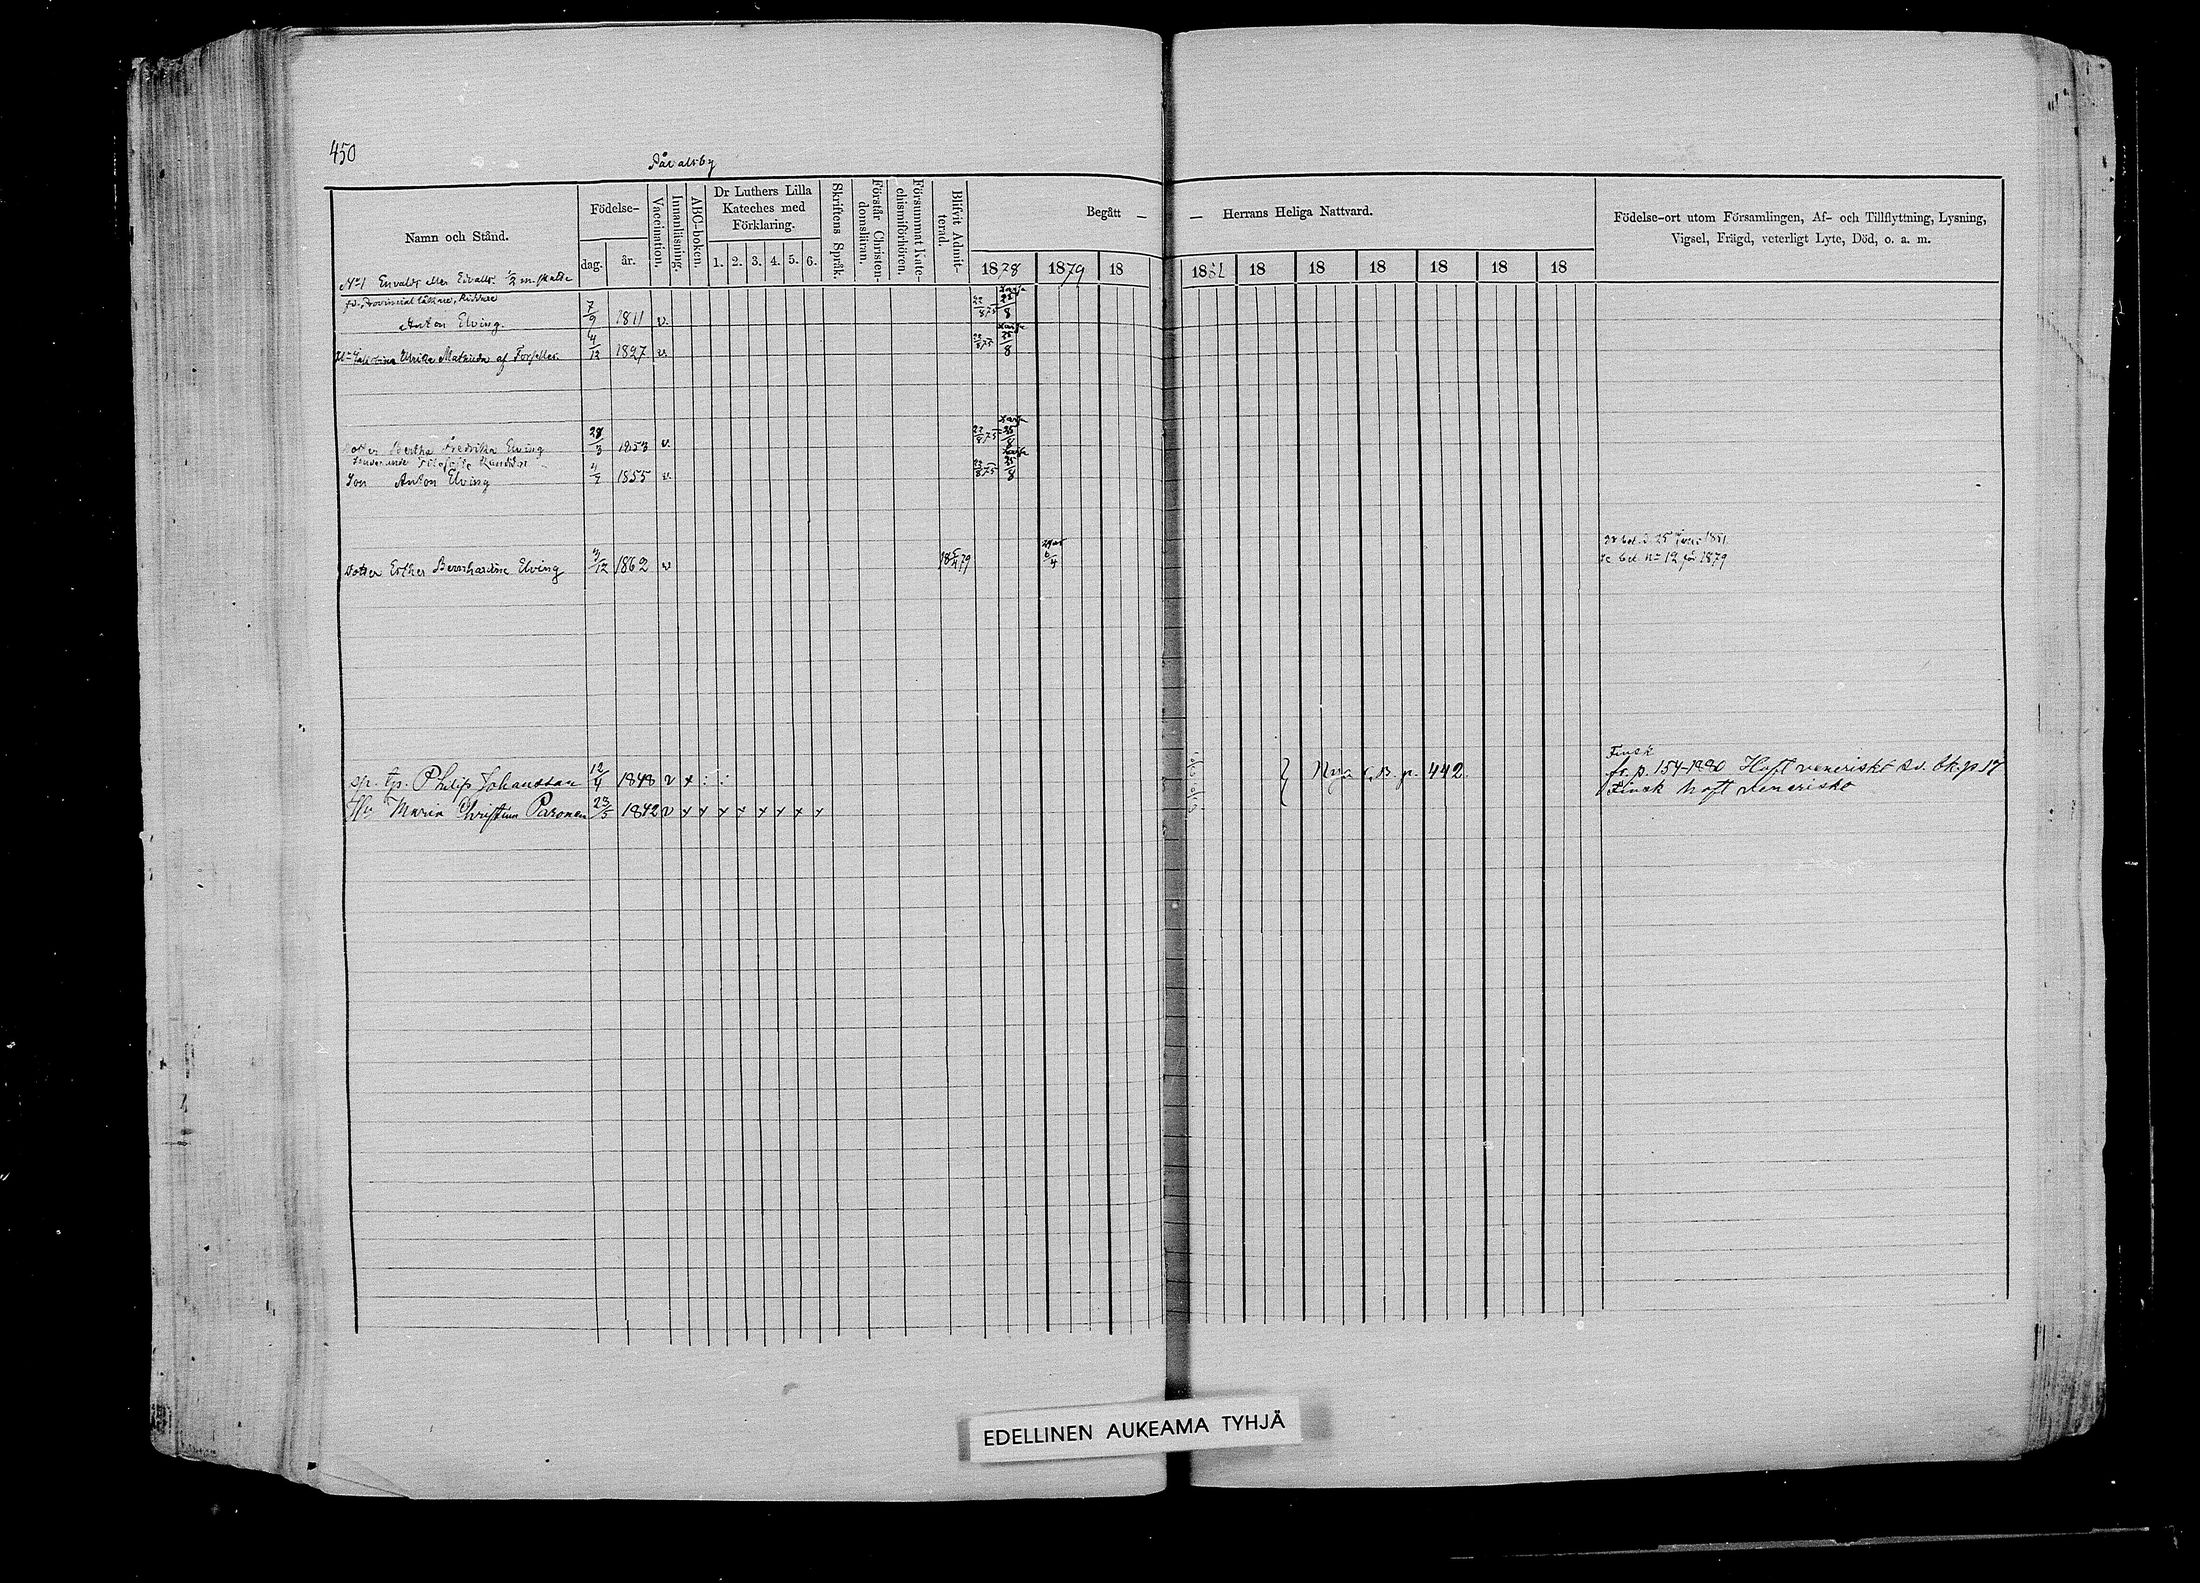 450
Påvalsby
Namn och Stånd.
Födelse-
dag.
år.
Vaccination.
Innanläsning.
ABC-boken.
Dr Luthers Lilla
Kateches med
Förklaring.
1. 2. 3. 4. 5. 6.
Skriftens Språk.
Förstår Christen-
domsläran.
Försummat Kate-
chismiförhören.
Blifvit Admit-
terad.
Begått —
1878 1879 18
— Herrans Heliga Nattvard.
1881 18 18 18 18 18 18
Födelse-ort utom Församlingen, Af- och Tillflyttning, Lysning,
Vigsel, Frägd, veterligt Lyte, Död, o. a. m.
No 1 Envalds eller Eivalls 1/2 m. skatt
fd. Provincial läkare, Riddare
Anton Elving. 7/9 1811 v. 22/8 75
Ulrika Mathilda af Forselles 4/12 1827 v. 25/8
Bertha Fredrika Elving 28/3 1853 v. 22/8 75 25/8
Filosofie Kandidat
Son Anton Elving 1855 v. 22/8 75 25/8
dotter Esther Bernhardine Elving 3/12 1862 v 18 5/4 79 6/4
bet. No 12 för 1879
sp. tp. Philip Johansson 12/4 1848 v x : :
Hu Maria Christina Paronen 23/5 1842 v x x x x x x x x
} Nya C. B. p. 442
Finsk
fr. p. 154-1880 Haft veneriskt
Finsk haft veneriskt
EDELLINEN AUKEAMA TYHJÄ